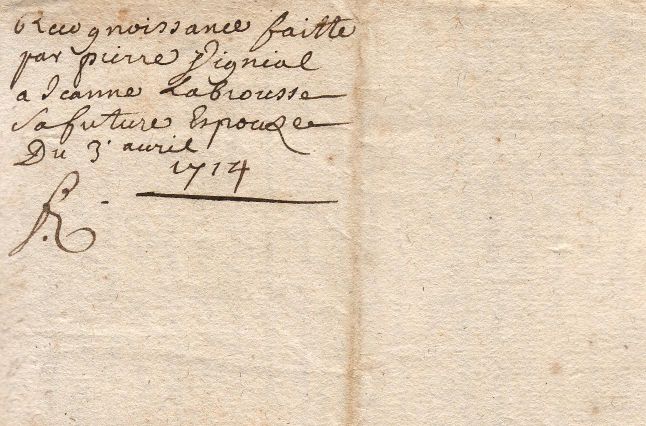 Recognoissance faitte
par pierre vignial
a Jeanne Labrousse
sa future Espouze
Du 3e auril
1714
R